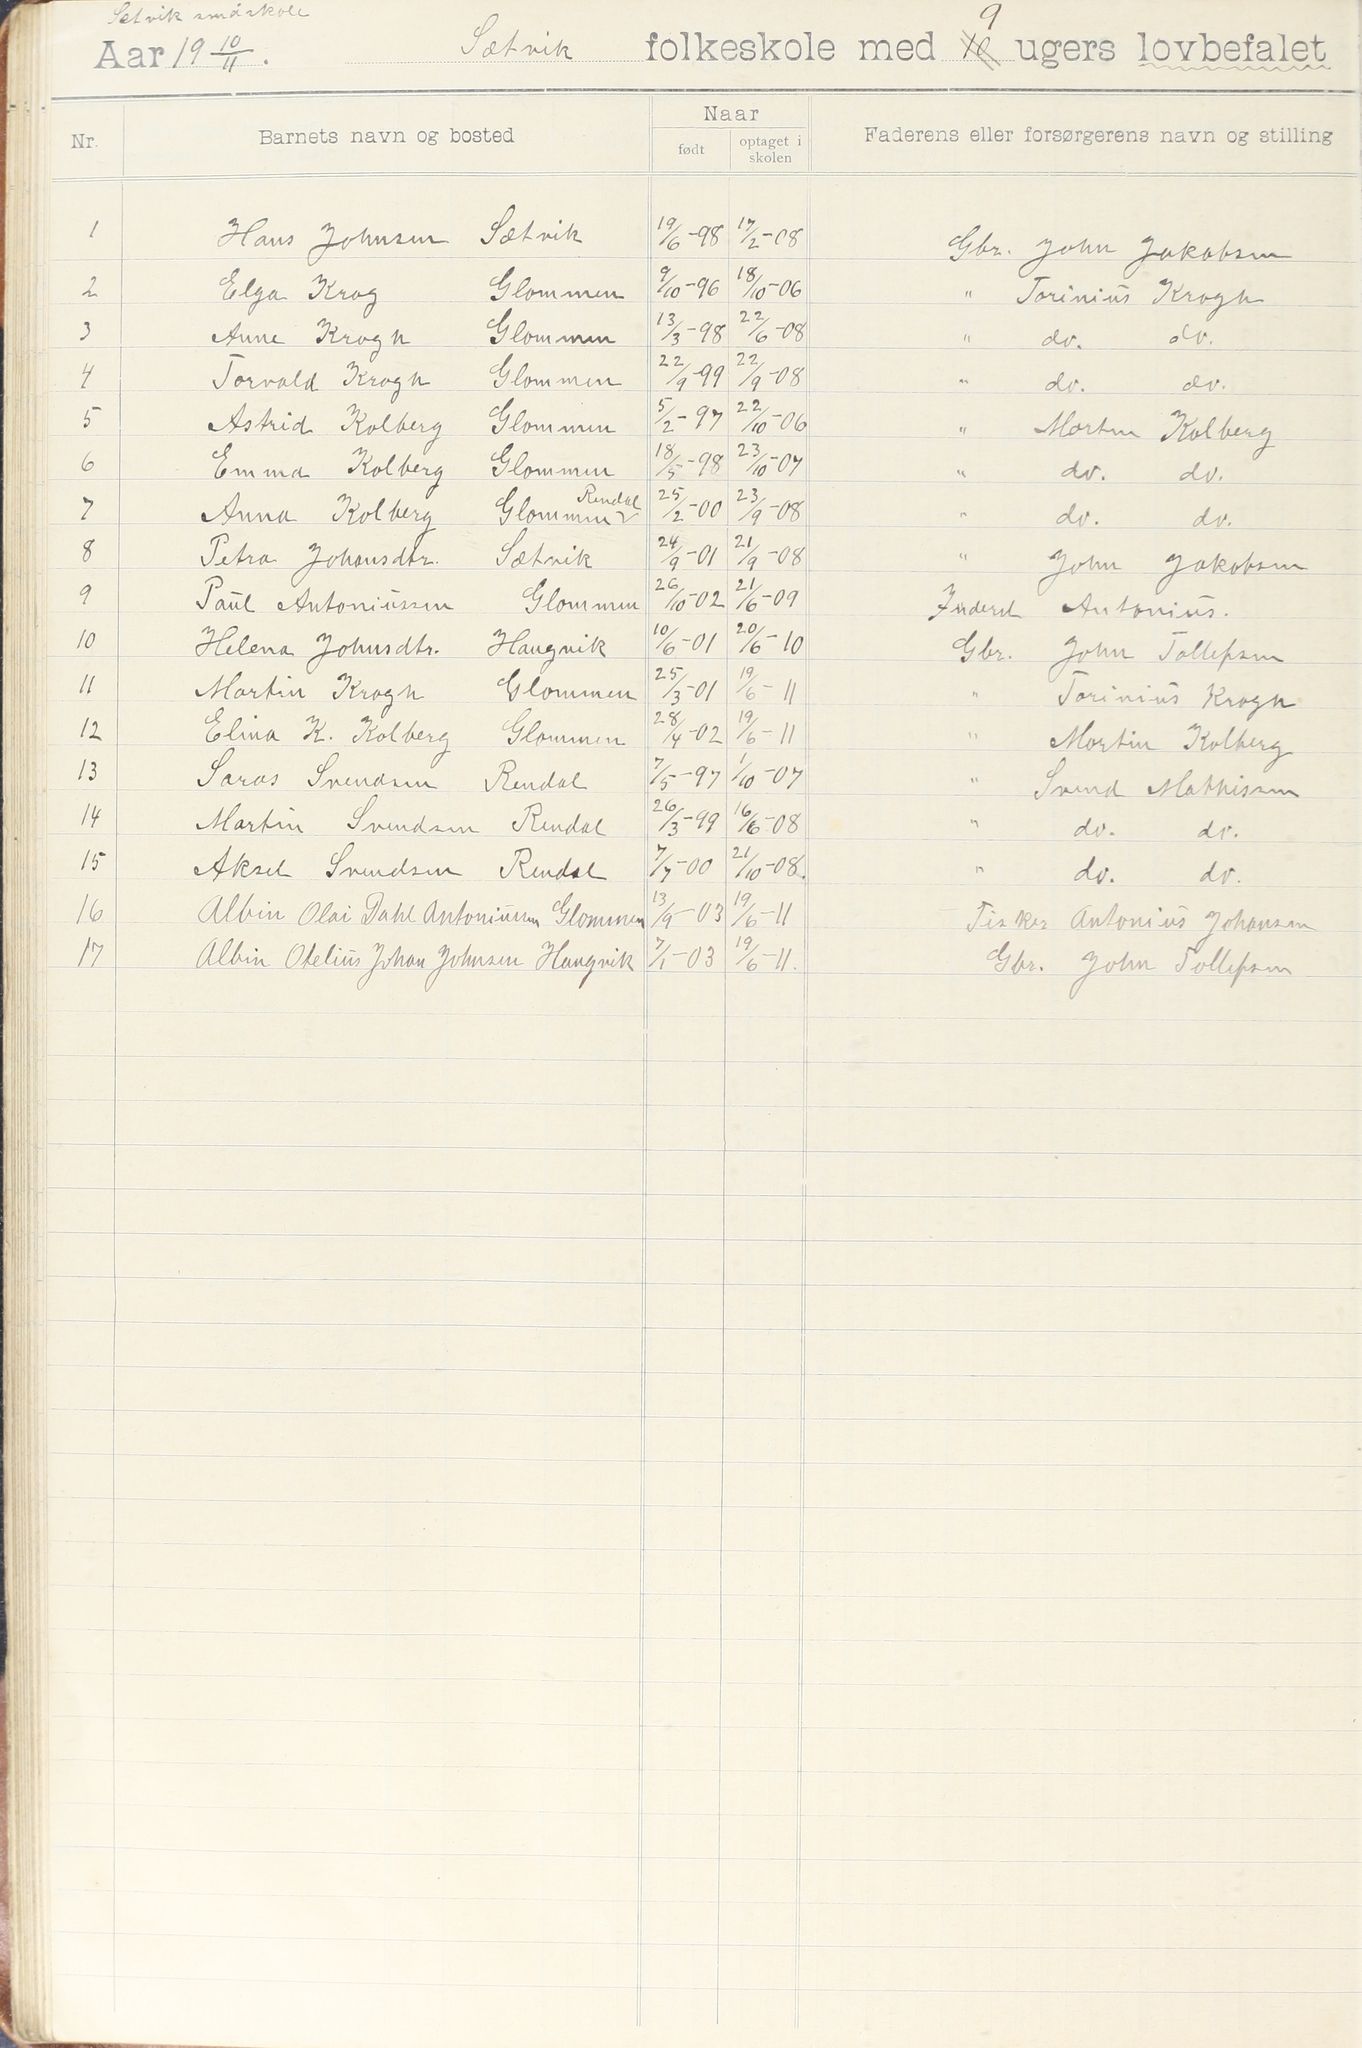 Sætvik småskole
Aar 19 10/11. Sætvik folkeskole med 9 ugers lovbefalet
Nr. Barnets navn og bosted Naar født optaget i skolen Faderens eller forsørgerens navn og stilling
1 Hans Johnsen Sætvik 19/6-98 17/2-08 Gbr. John Jakobsen
2 Elga Krog Glommen 9/10-96 18/10-06 " Torinius Krogh
3 Anne Krogh Glommen 13/3-98 22/6-08 " do. do.
4 Torvald Krogh Glommen 22/9-99 22/9-08 " do. do.
5 Astrid Kolberg Glommen 5/2-97 22/10-06 " Martin Kolberg
6 Emma Kolberg Glommen 18/5-98 23/10-07 " do. do.
7 Anna Kolberg Glommen Rendal 25/2-00 23/9-08 " do. do.
8 Petra Johansdtr. Sætvik 24/9-01 21/9-08 " John Jakobsen
9 Paul Antoniussen Glommen 26/10-02 21/6-09 Inderst Antonius.
10 Helena Johnsdtr. Haugvik 10/6-01 20/6-10 Gbr. John Tollefsen
11 Martin Krogh Glommen 25/3-01 19/6-11 " Torinius Krogh
12 Elina K. Kolberg Glommen 28/4-02 19/6-11 " Martin Kolberg
13 Saras Svendsen Rendal 7/5-97 1/10-07 " Svend Mathissen
14 Martin Svendsen Rendal 26/3-99 16/6-08 " do. do.
15 Aksel Svendsen Rendal 7/7-00 21/10-08. " do. do.
16 Albin Olai Dahl Antoniussen Glommen 13/9-03 19/6-11 Fisker Antonius Johansen
17 Albin Otelius Johan Johnsen Haugvik 7/1-03 19/6-11. Gbr. John Tollefsen